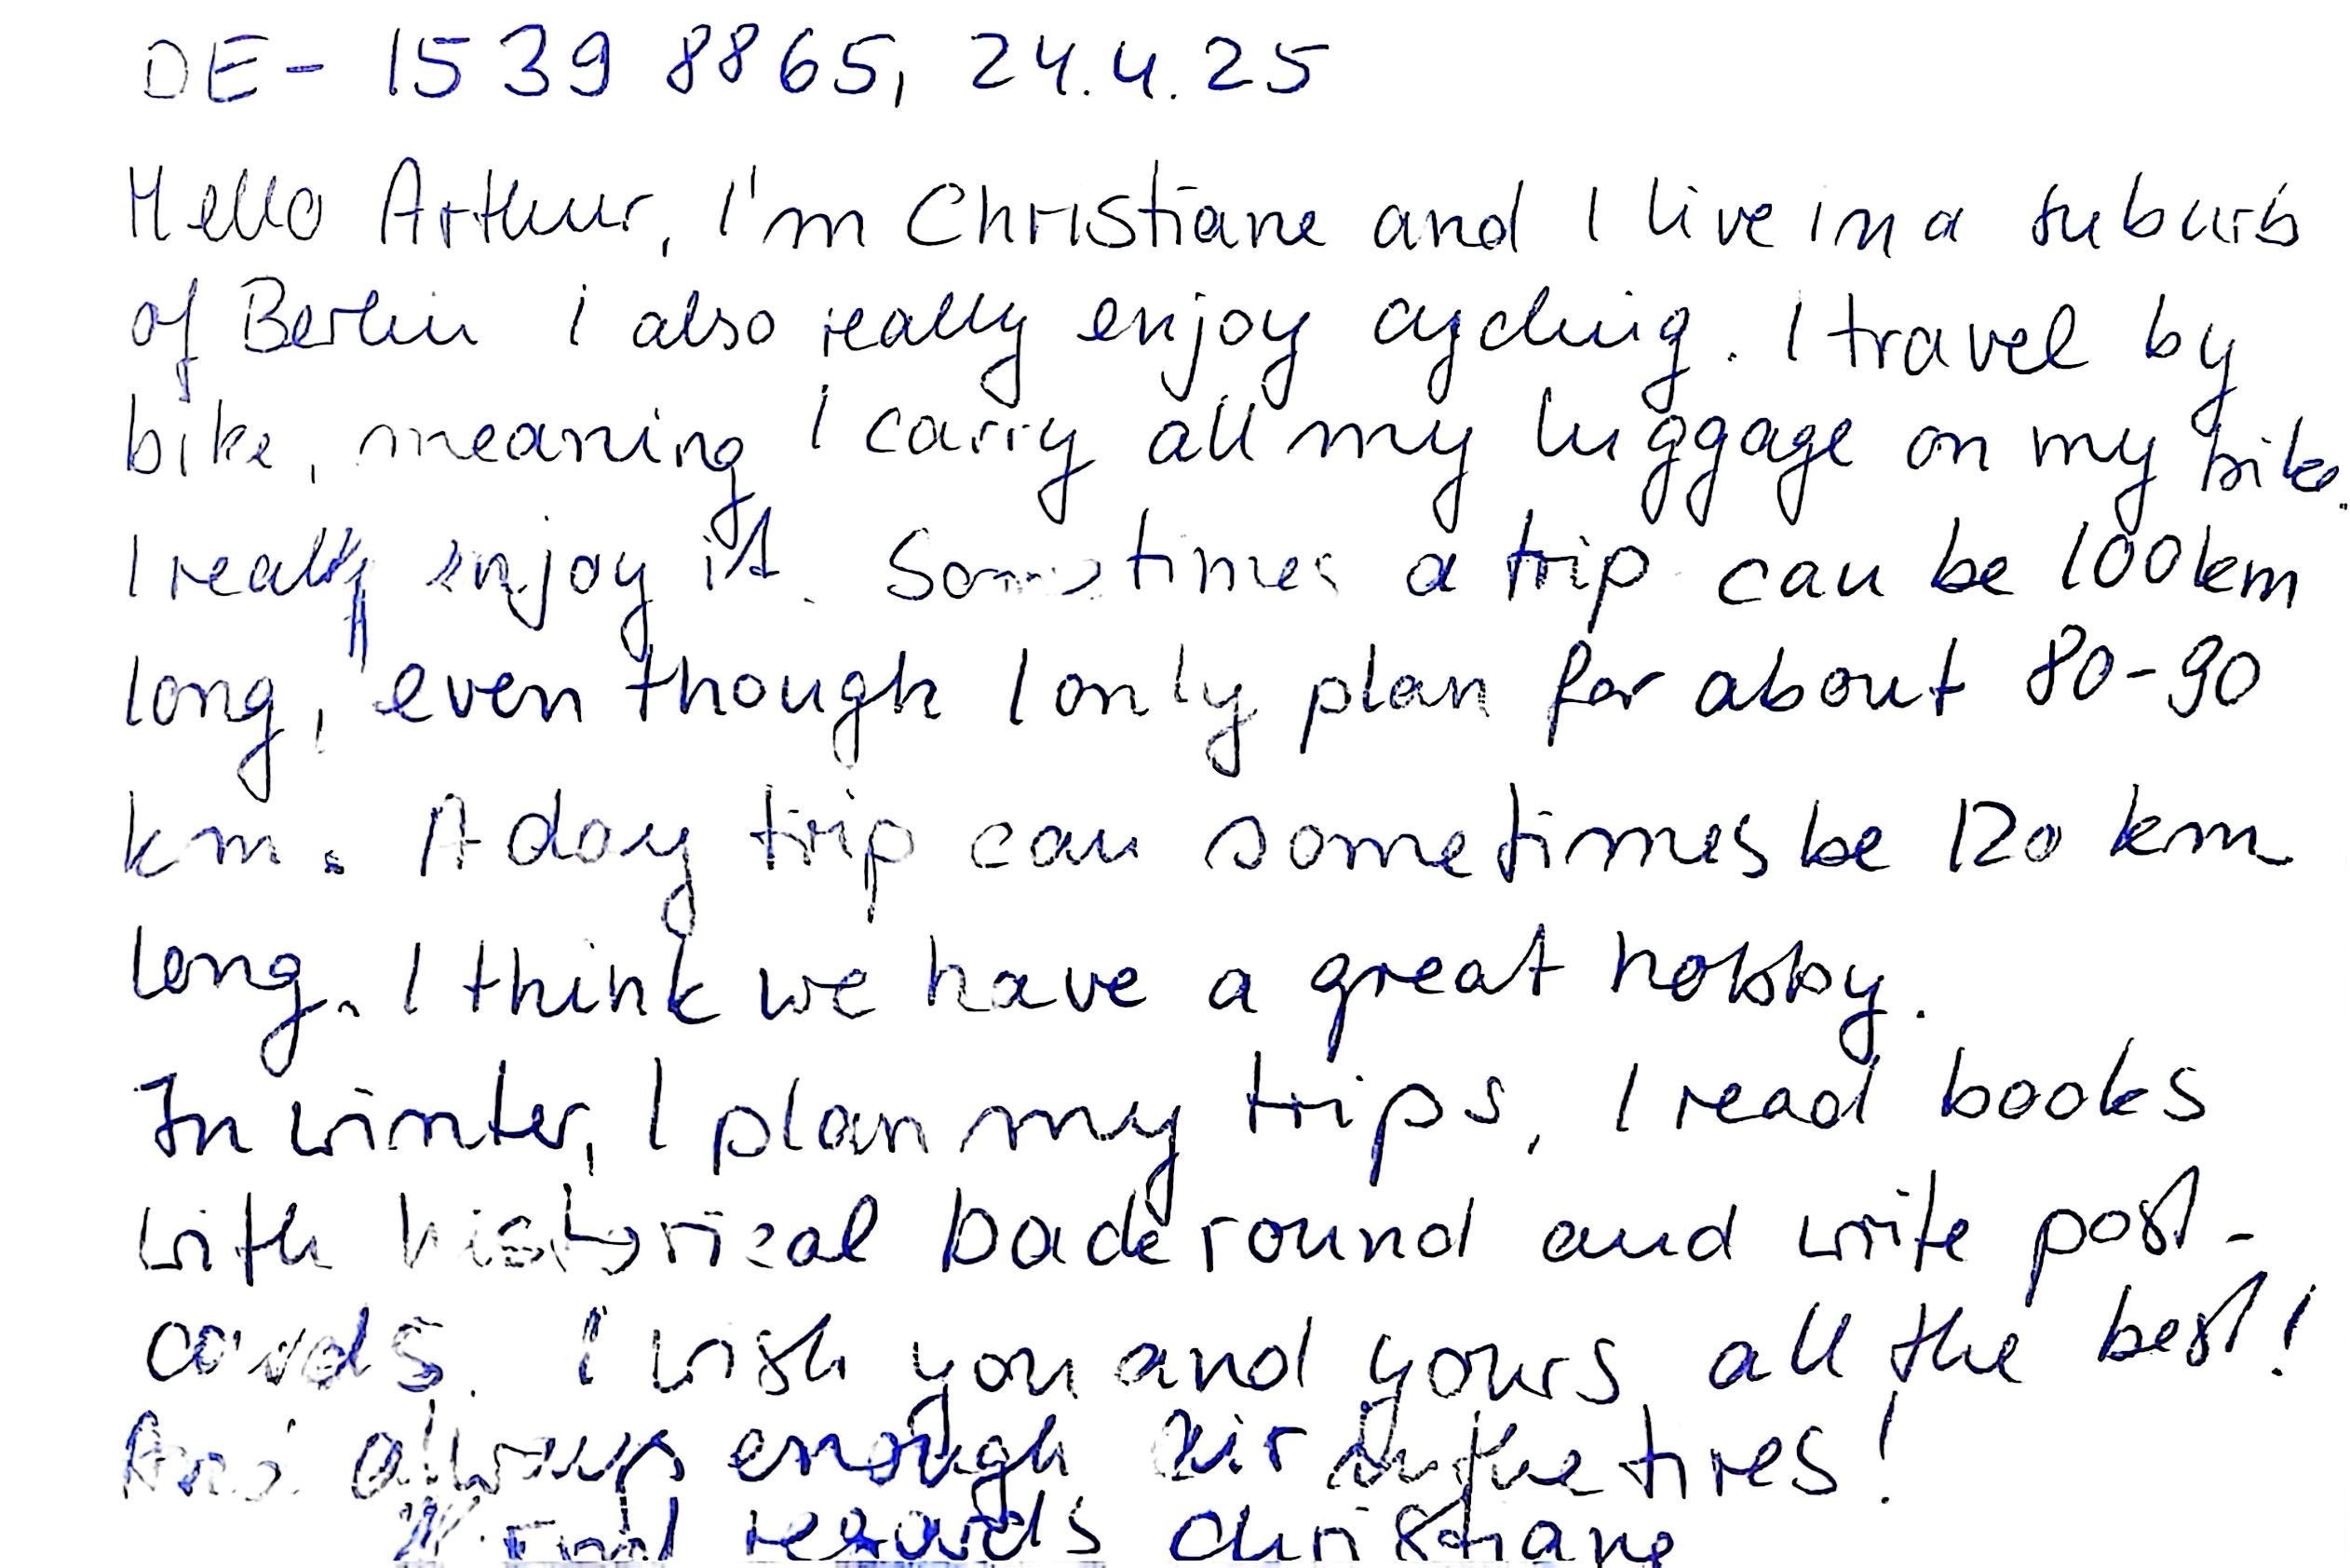 DE- 1539 8865, 24.4.25
Hello Arthur, I'm Christiane and I live in a suburb
of Berlin I also really enjoy cycling. I travel by
bike, meaning I carry all my luggage on my bike.
I really enjoy it. Sometimes a trip can be 100km
long, even though I only plan for about 80-90
km. A day trip can sometimes be 120 km
long. I think we have a great hobby.
In winter, I plan my trips, I read books
with historical backround and write post-
cards. I wish you and yours all the best!
And always enough air in the tires!
Kind regards Christiane